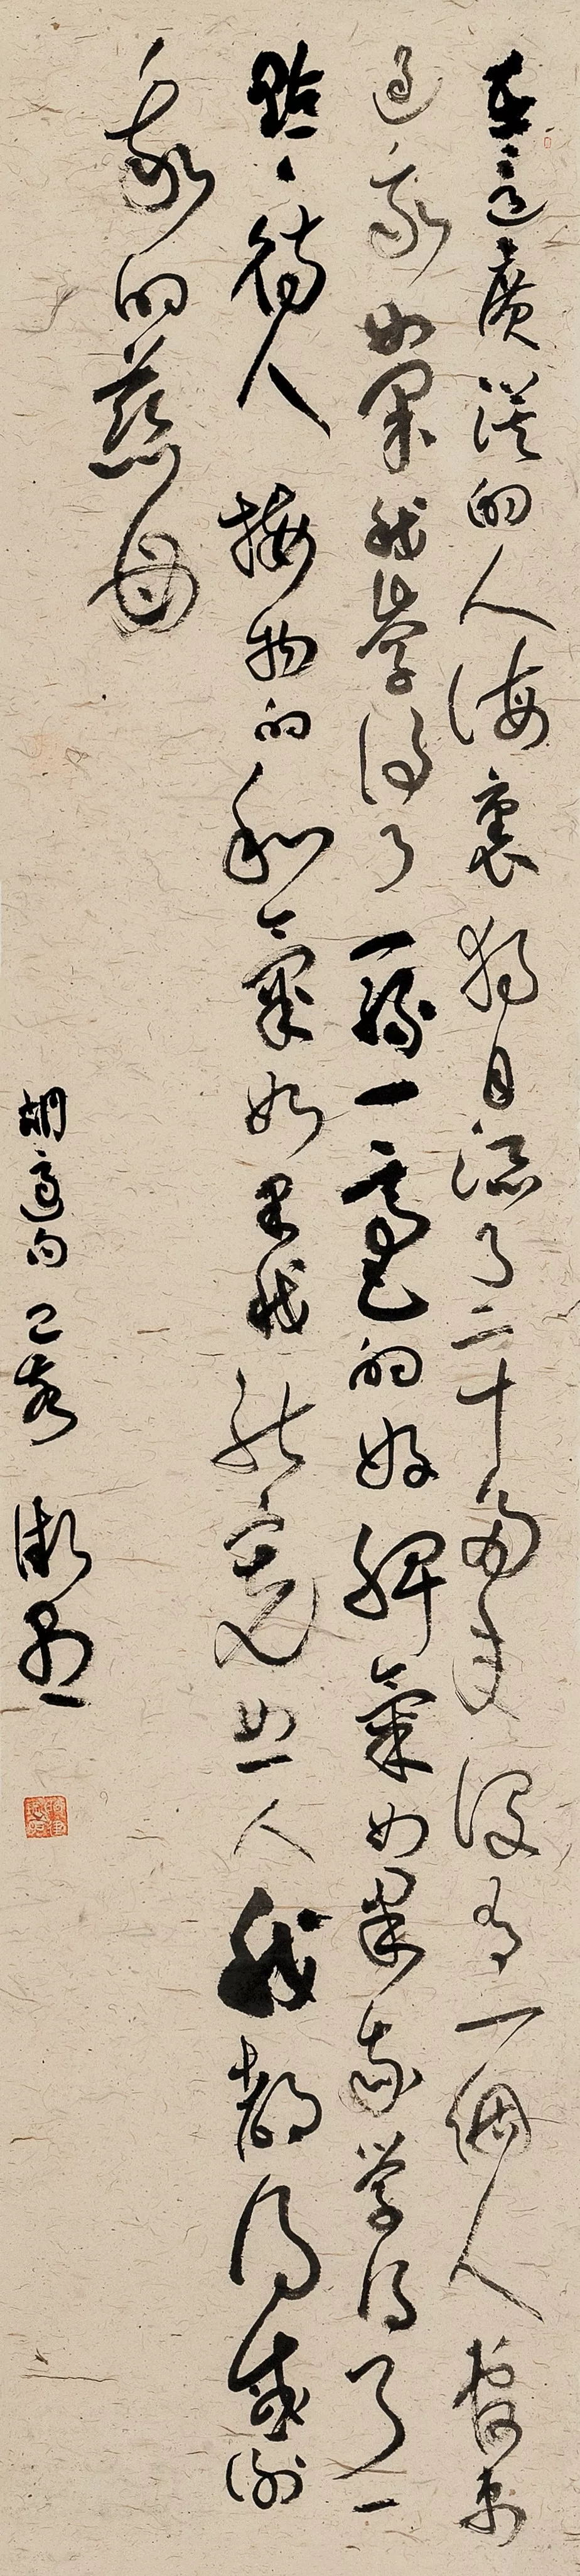 在這廣漠的人海裏獨自混了二十多年沒有一個人管束
過我如果我學得了一絲一毫的好脾氣如果我學得了一
點點待人接物的和氣如果我能寬恕人我都得感謝
我的慈母
胡適句 己亥